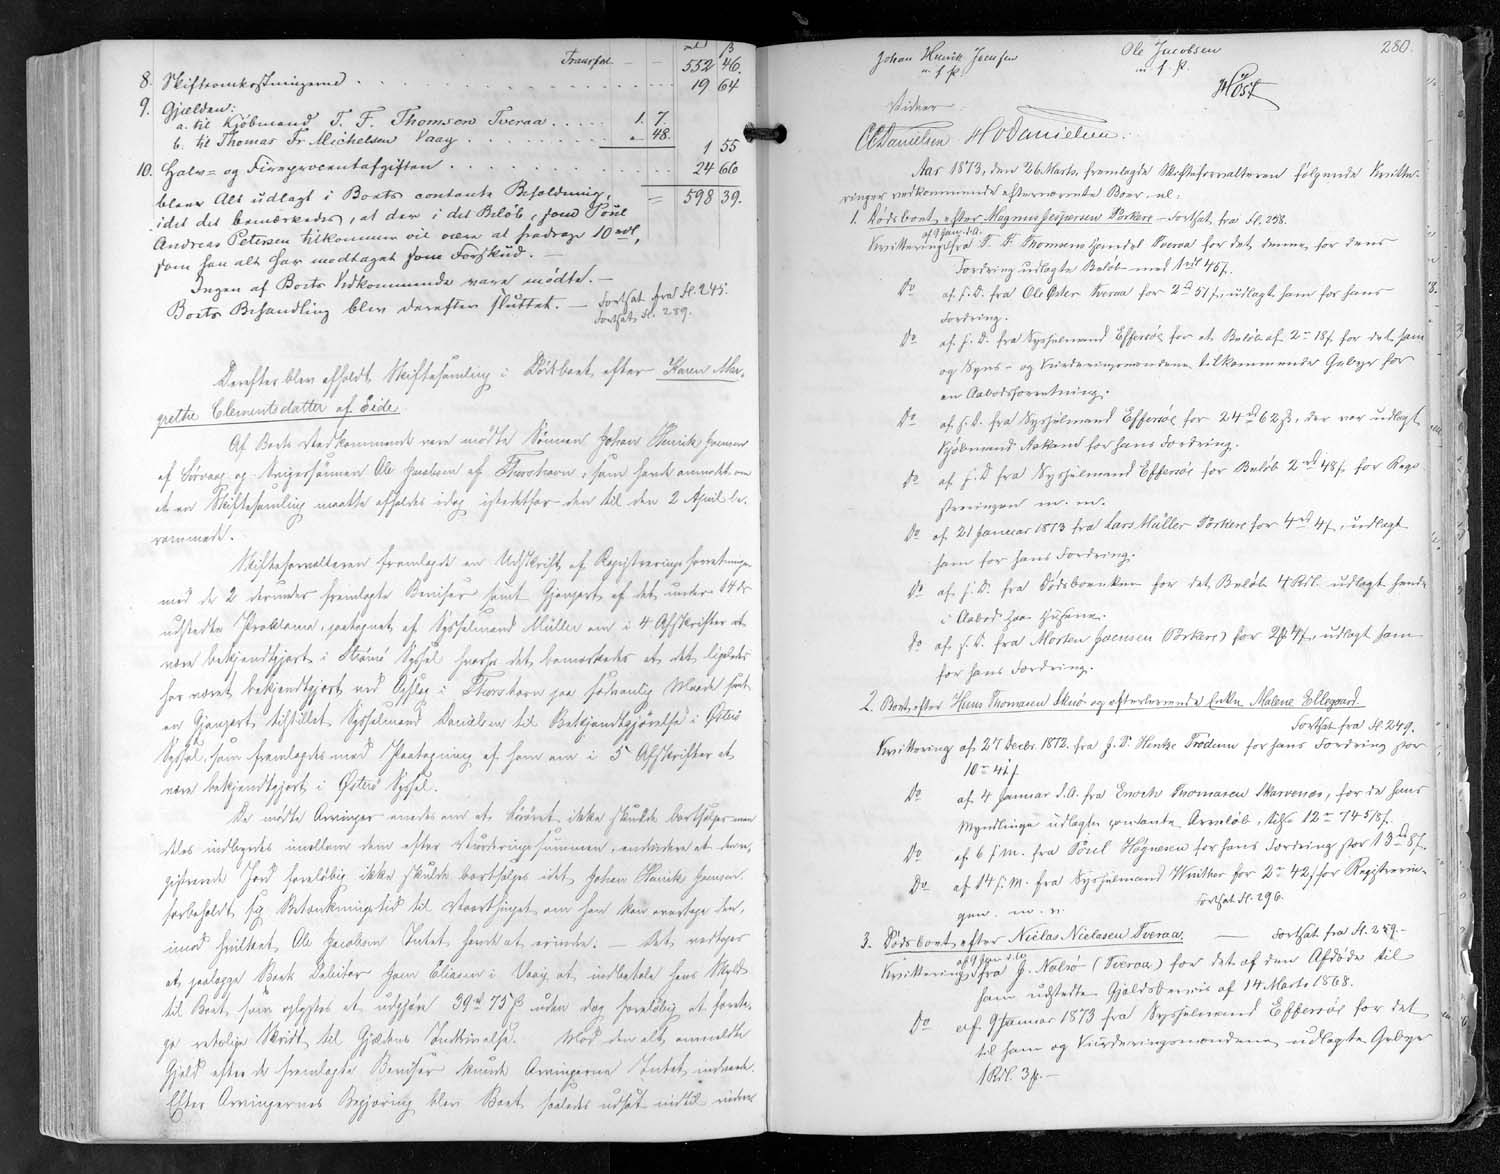 Transport — — 552 46.
8. Skifteomkostningerne . . . 19 64
9. Gjælden:
a. til Kjøbmand T. F. Thomsen Tveraa . . . . 1. 7.
b. til Thomas Fr Michelsen Vaag . . . " 48.
1 55
10. Halv- og Fireprocentafgiften . . . 24 66
blev Alt udlagt i Boets contante Beholdning, = 598 39.
idet det bemærkedes, at der i det Beløb, som Poul
Andreas Petersen tilkommer vil være at fradrage 10 rdl,
som han alt har modtaget som Forskud. —
Ingen af Boets Vedkommende vare mødte. —
Boets Behandling blev derefter sluttet. — Fortsat fra fl. 245.
Fortsat fl. 289.
Derefter blev afholdt Skiftesamling i Dødsboet efter Karen Mar-
grethe Clementsdatter af Eide.
Af Boets Vedkommende vare mødte Sønnen Johan Henrik Joensen
af Sørvaag og Svigersønnen Ole Jacobsen af Thorshavn, som havde anmodet om
at en Skiftesamling maatte afholdes idag istedetfor den til den 2 April be-
rammede.
Skifteforvalteren fremlagde en Udskrift af Registreringsforretningen
med de 2 derunder fremlagte Beviser samt Gjenpart af det under 14 ds
udstedte Proklama, paategnet af Sysselmand Müller om i 4 Afskrifter at
være bekjendtgjort i Strømø Syssel hvorhos det bemærkedes at det ligeledes
har været bekjendtgjort ved Opslag i Thorshavn paa sædvanlig Maade samt
en Gjenpart tilstillet Sysselmand Danielsen til Bekjendtgjørelse i Østerø
Syssel, som fremlagdes med Paategning af ham om i 5 Afskrifter at
være bekjendtgjort i Østerø Syssel.
De mødte Arvinger enedes om at Løsøret ikke skulde bortsælges men
deles indbyrdes imellem dem efter Vurderingssummen, endvidere at den re-
gistrerede Jord foreløbig ikke skulde bortsælges idet Johan Henrik Joensen
forbeholdt sig Betænkningstid til Vaarthinget om han kan overtage den,
imod hvilket Ole Jacobsen Intet havde at erindre. — Det vedtoges
at paalægge Boets Debitor Joen Eliasen i Vaag at indbetale hans Skyld
til Boet som oplystes at udgjøre 39 rd 75 ß uden dog foreløbig at foreta-
ge retslige Skridt til Gjældens Inddrivelse. Mod den alt anmeldte
Gjæld efter de fremlagte Beviser havde Arvingerne Intet at indvende.
Efter Arvingernes Begjæring blev Boet saaledes udsat indtil videre
280.
Johan Henrik Joensen Ole Jacobsen
m. f. P. m. f. P.
Høst
Vidner
O C Danielsen H O Danielsen.
Aar 1873, den 26. Marts, fremlagde Skifteforvalteren følgende Kvitte-
ringer vedkommende efternævnte Boer, nl:
1. Dødsboet efter Magnus Jespersen Porkere — Fortsat. fra fl. 258.
af 9 Janr. d. A.
Kvittering fra T. F. Thomsens Handel Tveraa for det denne for dens
Fordring udlagte Beløb med 1 rdl 45 ß.
Do af s. D. fra Ole Øster Tveraa for 2 rd 51 ß, udlagt ham for hans
Fordring.
Do af s. D. fra Sysselmand Effersøe for et Beløb af 2 rd 18 ß for det ham
og Syns- og Vurderingsmændene tilkommende Gebyr for
en Aabodsforretning.
Do af s. D. fra Sysselmand Effersøe for 24 rd 62 ß, der var udlagt
Kjøbmand Askend for hans Fordring.
Do af s. D fra Sysselmand Effersøe for Beløb 2 rd 48 ß. for Regi-
streringen m. m.
Do af 21 Januar 1873 fra Lars Müller Porkere for 4 rd 4 ß, udlagt
ham for hans Fordring.
Do af s. D. fra Dødsboenken for det Beløb 4 Rdl. udlagt hende
i Aabod paa Husene.
Do af s. D. fra Morten Joensen (Porkere) for 2 rd 4 ß, udlagt ham
for hans Fordring.
2. Boet efter Hans Thomsen Skuø og efterlevende Enke Malene Ellegaard.
Fortsat fra fl. 249.
Kvittering af 27 Decbr. 1872. fra J. P. Henke Frodum for hans Fordring stor
10 rd 41 ß
Do af 4 Januar d. A. fra Enoch Thomasen Skarvenæs, for de hans
Myndlinge udlagte contante Arvelob, Ialt 12 rd 74 5/8 ß.
Do af 6 s. M. fra Poul Høgnesen for hans Fordring stor 13 rd 8 ß.
Do af 14 s. M. fra Sysselmand Winther for 2 rd 42 ß for Registrerin-
gen. m. v. Fortsat fl. 296.
3. Dødsboet efter Niclas Nielasen Tveraa. — Fortsat fra fl. 259. —
af 9 Jan. d. A.
Kvittering fra J. Nolsø (Tveraa) for det af den Afdøde til
ham udstedte Gjældsbevis af 14 Marts 1868.
Do af 9 Januar 1873 fra Sysselmand Effersøe for det
til ham og Vurderingsmændene udlagte Gebyr
1 Rdl. 3 ß. —